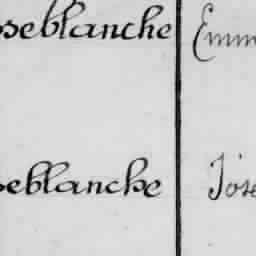 oseblanche Emm
seblanche Jose